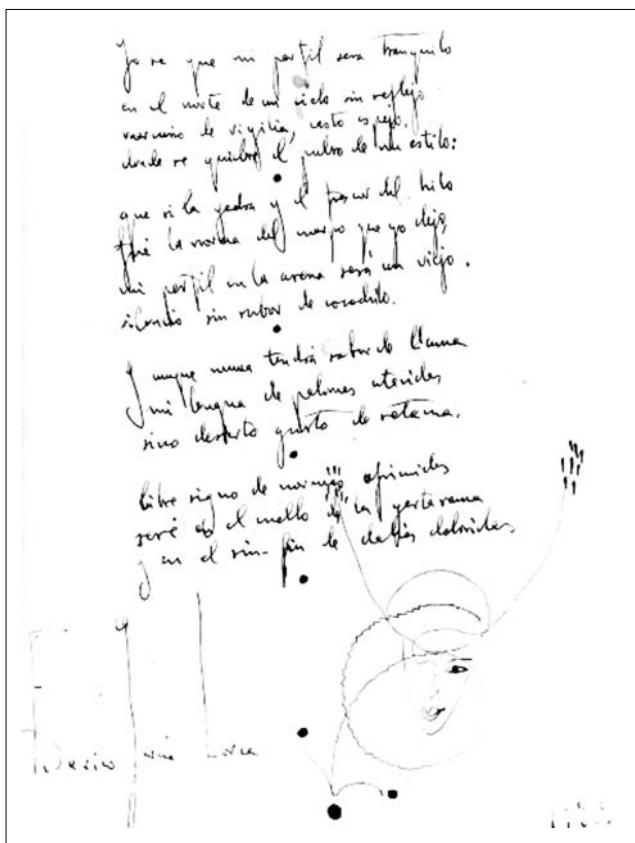 Yo se que mi perfil sera tranquilo
en el norte de un cielo sin reflejo
mercurio de vigilia, casto espejo,
donde se quiebre el pulso de mi estilo:
que si la yedra y el frescor del hilo
fué la norma del cuerpo que yo dejo,
mi perfil en la arena será un viejo
silencio sin rubor de cocodrilo.
Y aunque nunca tendrá sabor de llama
mi lengua de palomas ateridas
sino desierto gusto de retama,
libre signo de normas oprimidas
seré en el cuello de la yerta rama
y en el sin-fin de dalias doloridas
Federico García Lorca